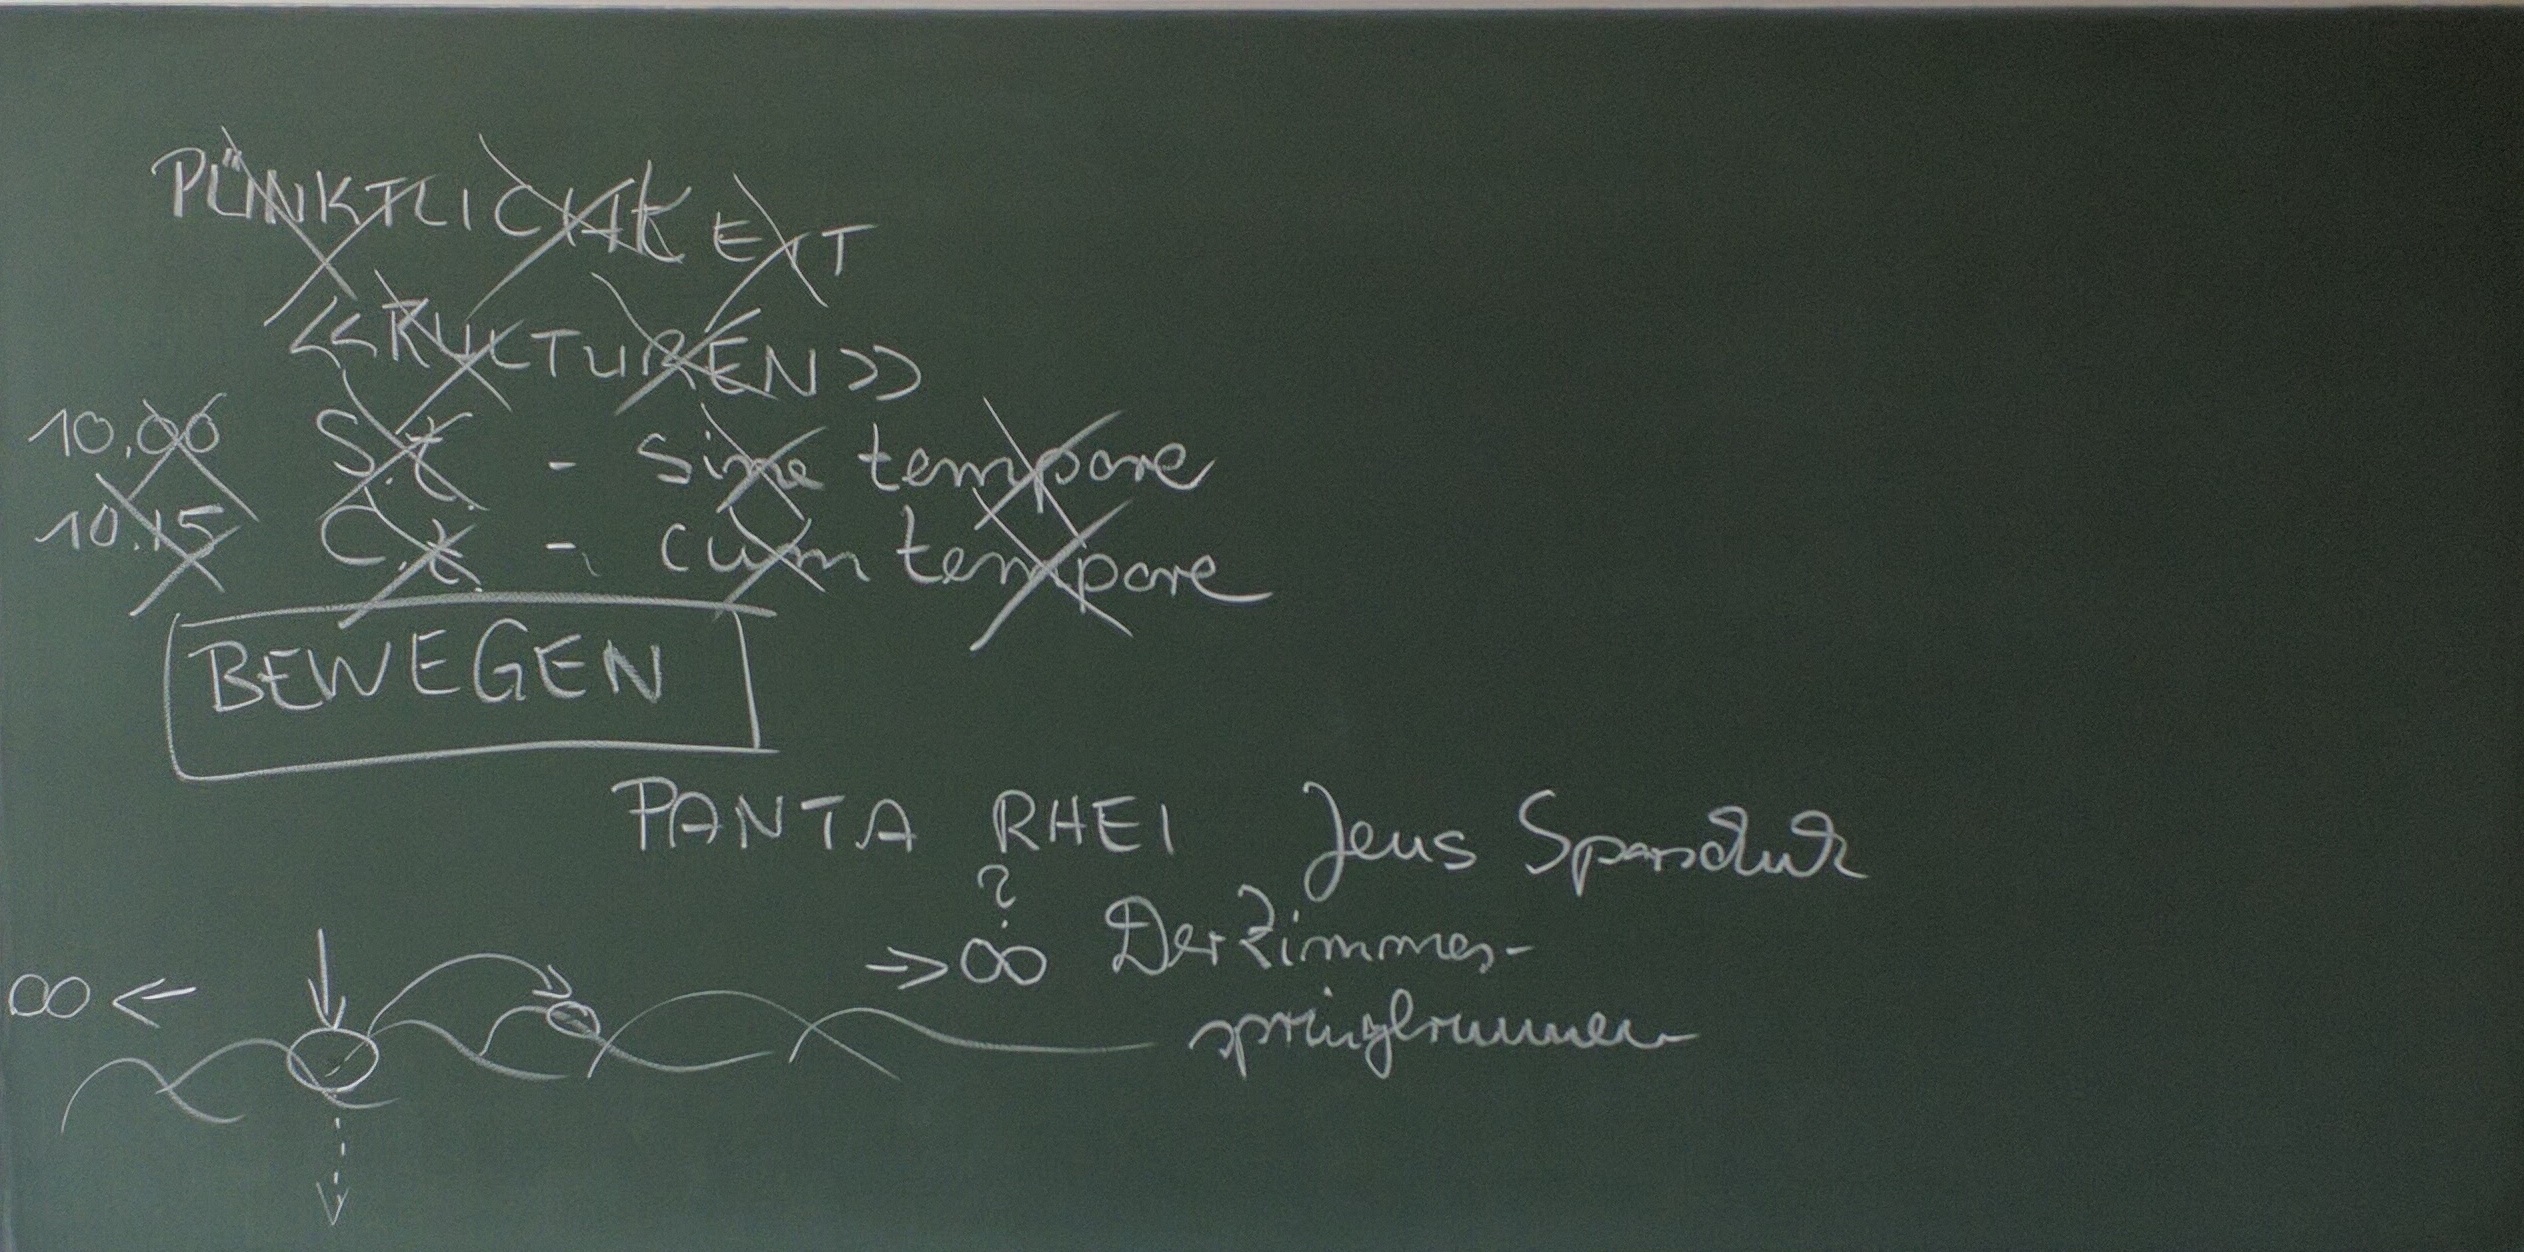 PÜNKTLICHKEIT
<<KULTUREN>>
10.00 S.t. - Sine tempore
10.15 C.t. - cum tempore
BEWEGEN
PANTA RHEI Jens Sparschuh
?
∞ ← → ∞ Der Zimmer-
springbrunnen